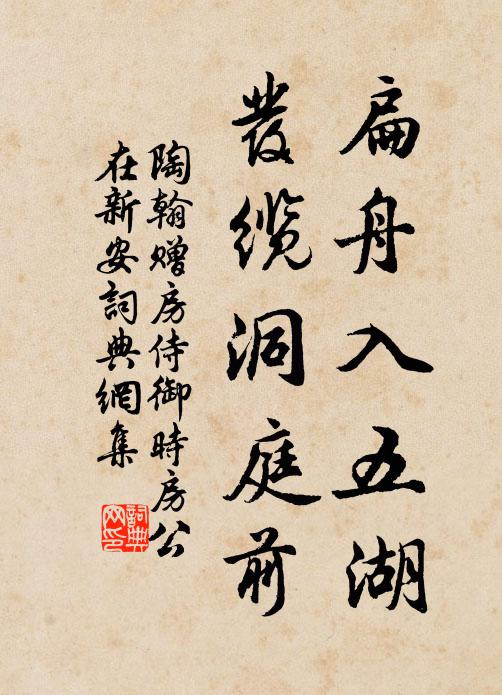 扁舟入五湖
發纜洞庭前
陶翰赠房侍御時房公
在新安詞典網集
詞典
网印